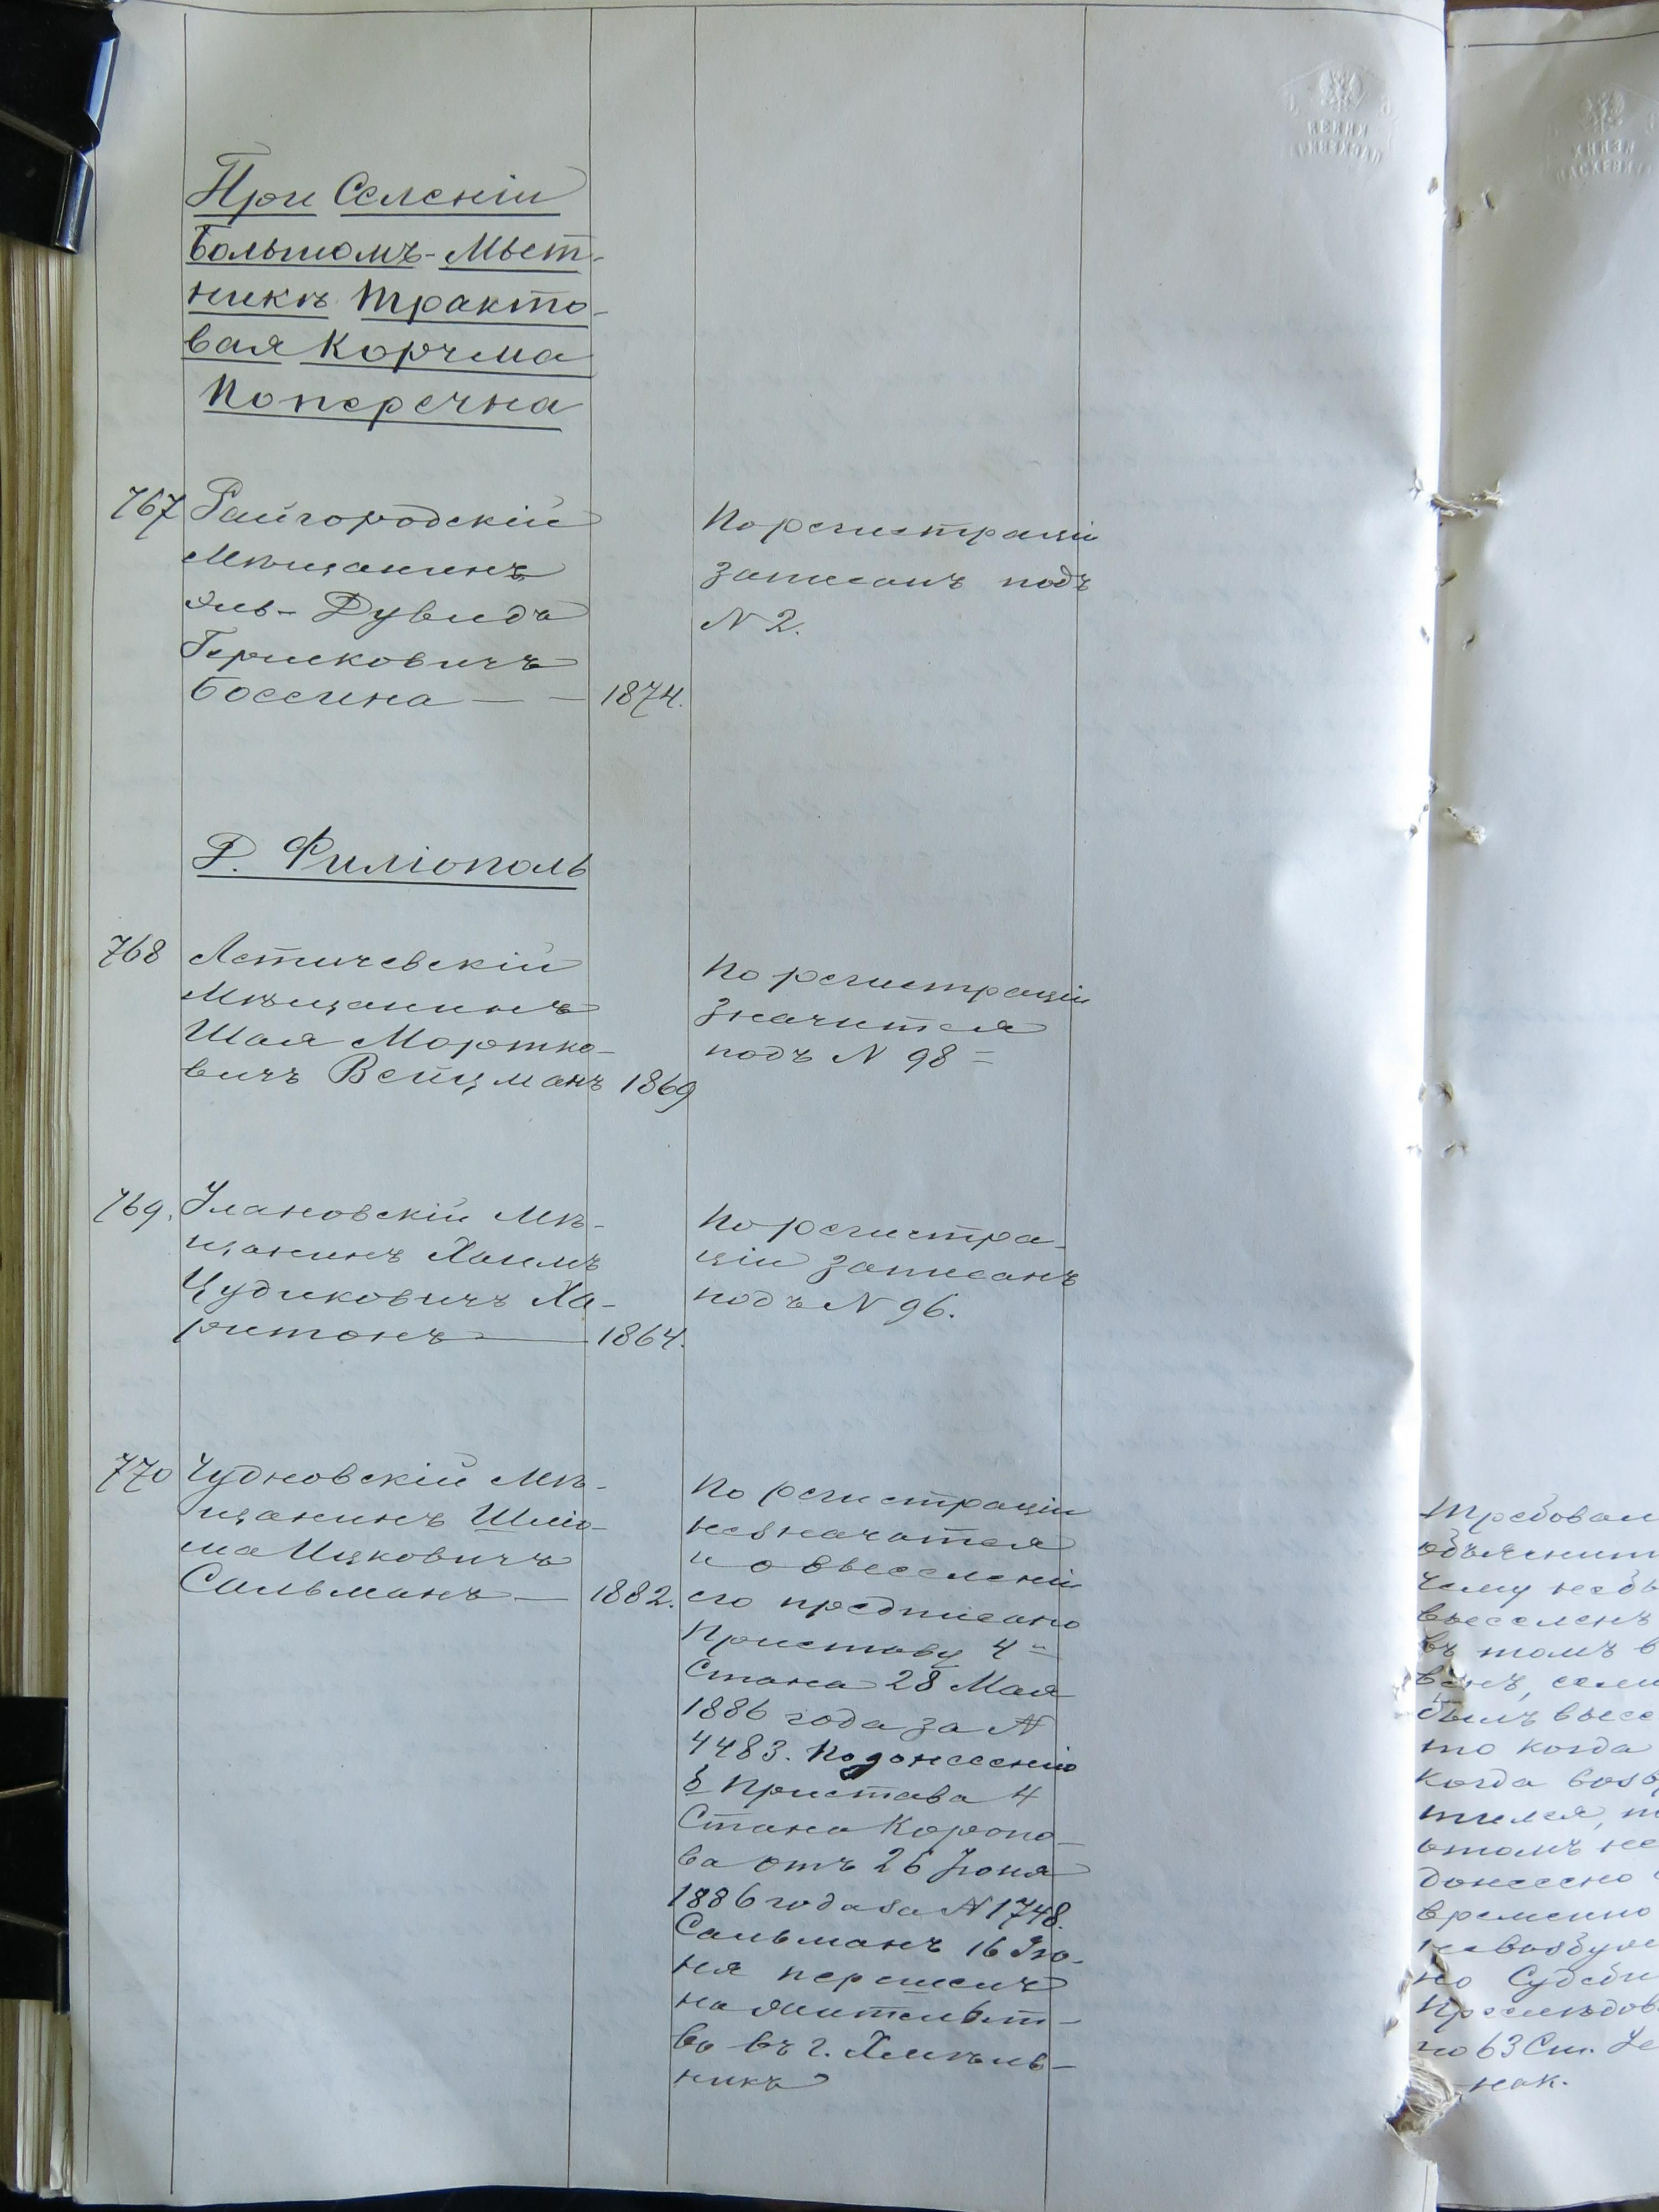 При Селеніи
Большомъ-Мытникѣ
трактовая Корчма
Поперечна
767 Райгородскій
Мѣщанинъ
Эль-Дувидъ
Гершковичъ
Боссина — — 1874.
По регистраціи
записанъ подъ
N 2.
Д. Филіополь
768 Летичевскій
Мѣщанинъ
Шая Мортко-
вичъ Вейцманъ 1869
По регистраціи
значится
подъ N 98 =
769. Улановскій Мѣ-
щанинъ Хаимъ
Цудиковичъ Ха-
ритонъ — 1864.
По регистра-
ціи записанъ
подъ N 96.
770 Чудновскій Мѣ-
щанинъ Шлио-
ма Ицковичъ
Сальманъ — 1882.
По регистраціи
незначится
и о выселеніи
его предписано
Приставу 4-
Стана 28 Мая
1886 года за N
4483. По донесенію
Пристава 4
Стана
отъ 26 Іюня
1886 года за N 1748.
Сальманъ 16 Ію-
ня перешелъ
на жительст-
во въ г. Хмѣль-
никъ
Требован
объяснит
чему небы
выселенъ
въ томъ в
венъ, если
былъ высе
то когда
когда возв
тился, п
отомъ не
донесено
временно
невозбуж
но Судебн
Преслѣдов
по 63 Ст. Ус
нак.
КНЯЗЯ
ПАСКЕВИЧА